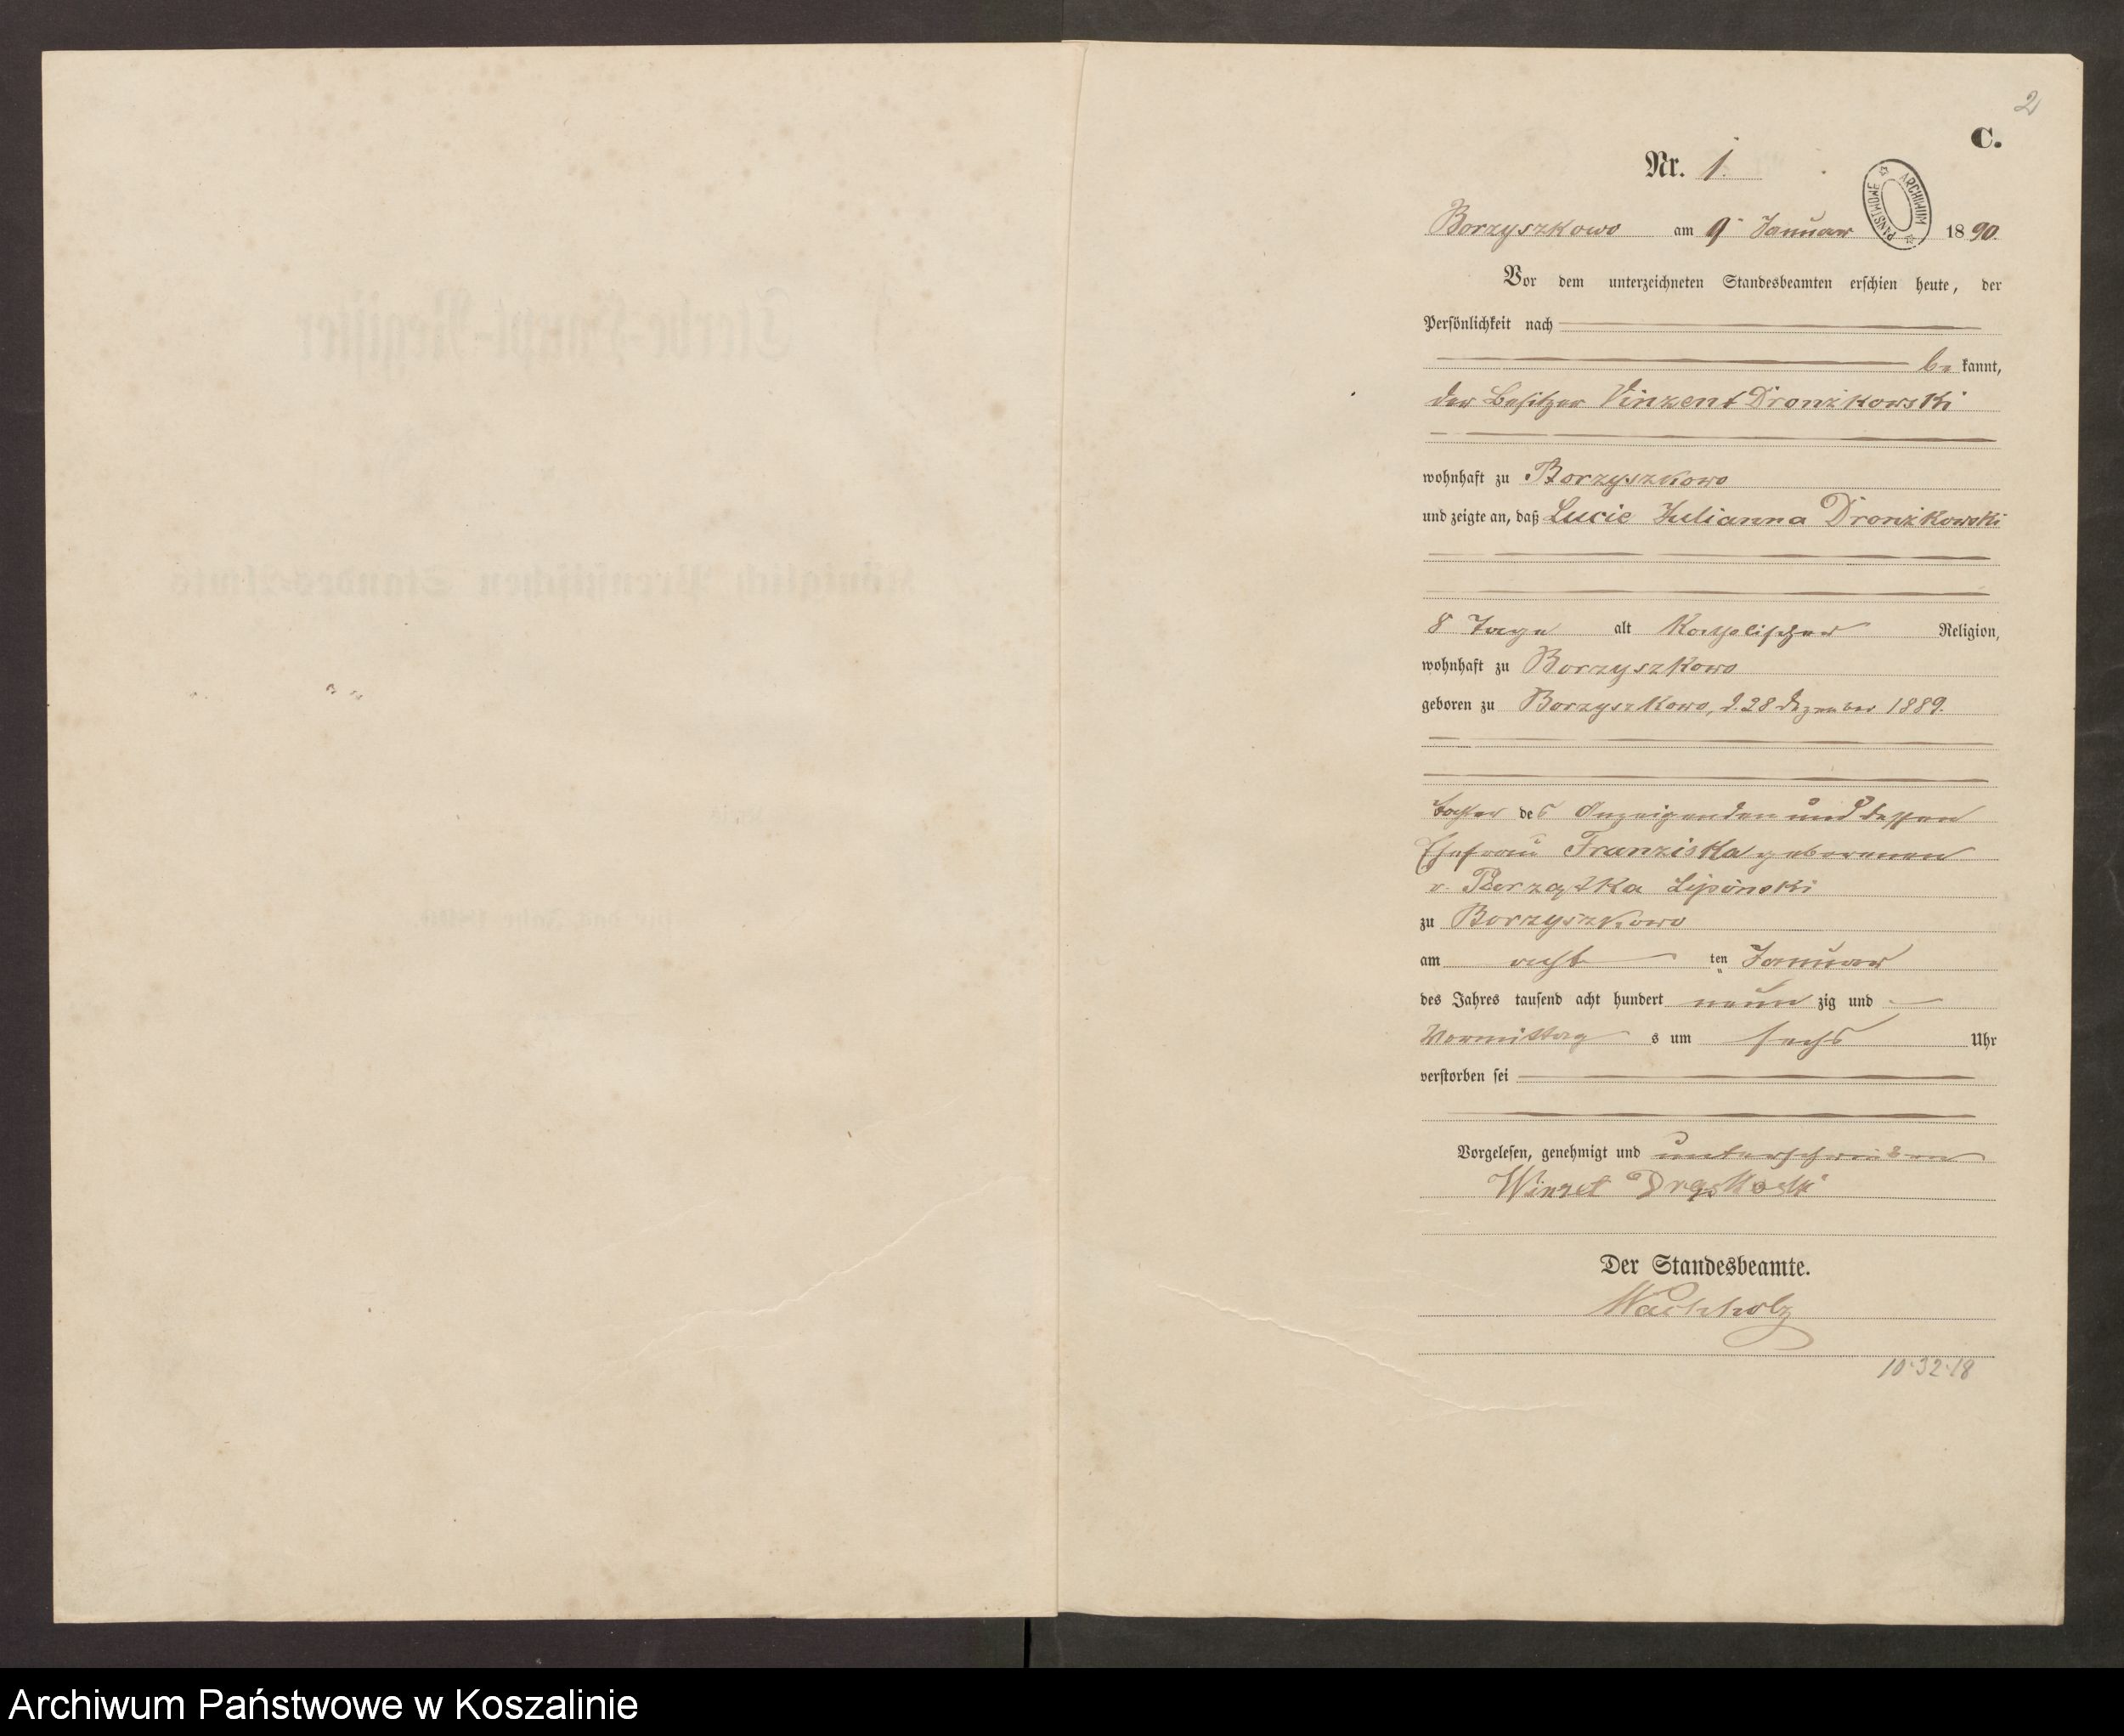 2
C.
Nr. 1.
ARCHIWUM PAŃSTWOWE
Borzyszkowo am 9 Januar 1890.
Vor dem unterzeichneten Standesbeamten erschien heute, der
Persönlichkeit nach
be kannt,
der Besitzer Vinzent Dronzkowski
wohnhaft zu Borzyszkowo
und zeigte an, daß Lucie Julianna Dronzkowski
8 Tage alt Katholischer Religion,
wohnhaft zu Borzyszkowo
geboren zu Borzyszkowo, d. 28 Dezember 1889.
Tochter des Anzeigenden und dessen
Ehefrau Franziska geborenen
v. Lipinski
zu Borzyszkowo
am acht ten Januar
des Jahres tausend acht hundert neun zig und
Vormittag s um sechs Uhr
verstorben sei
Vorgelesen, genehmigt und unterschrieben
Der Standesbeamte.
Wachholz
10·32·18
Sterbe-Haupt-Register
Königlich Preußischen Standes-Amts
für das Jahr 1890
Archiwum Państwowe w Koszalinie